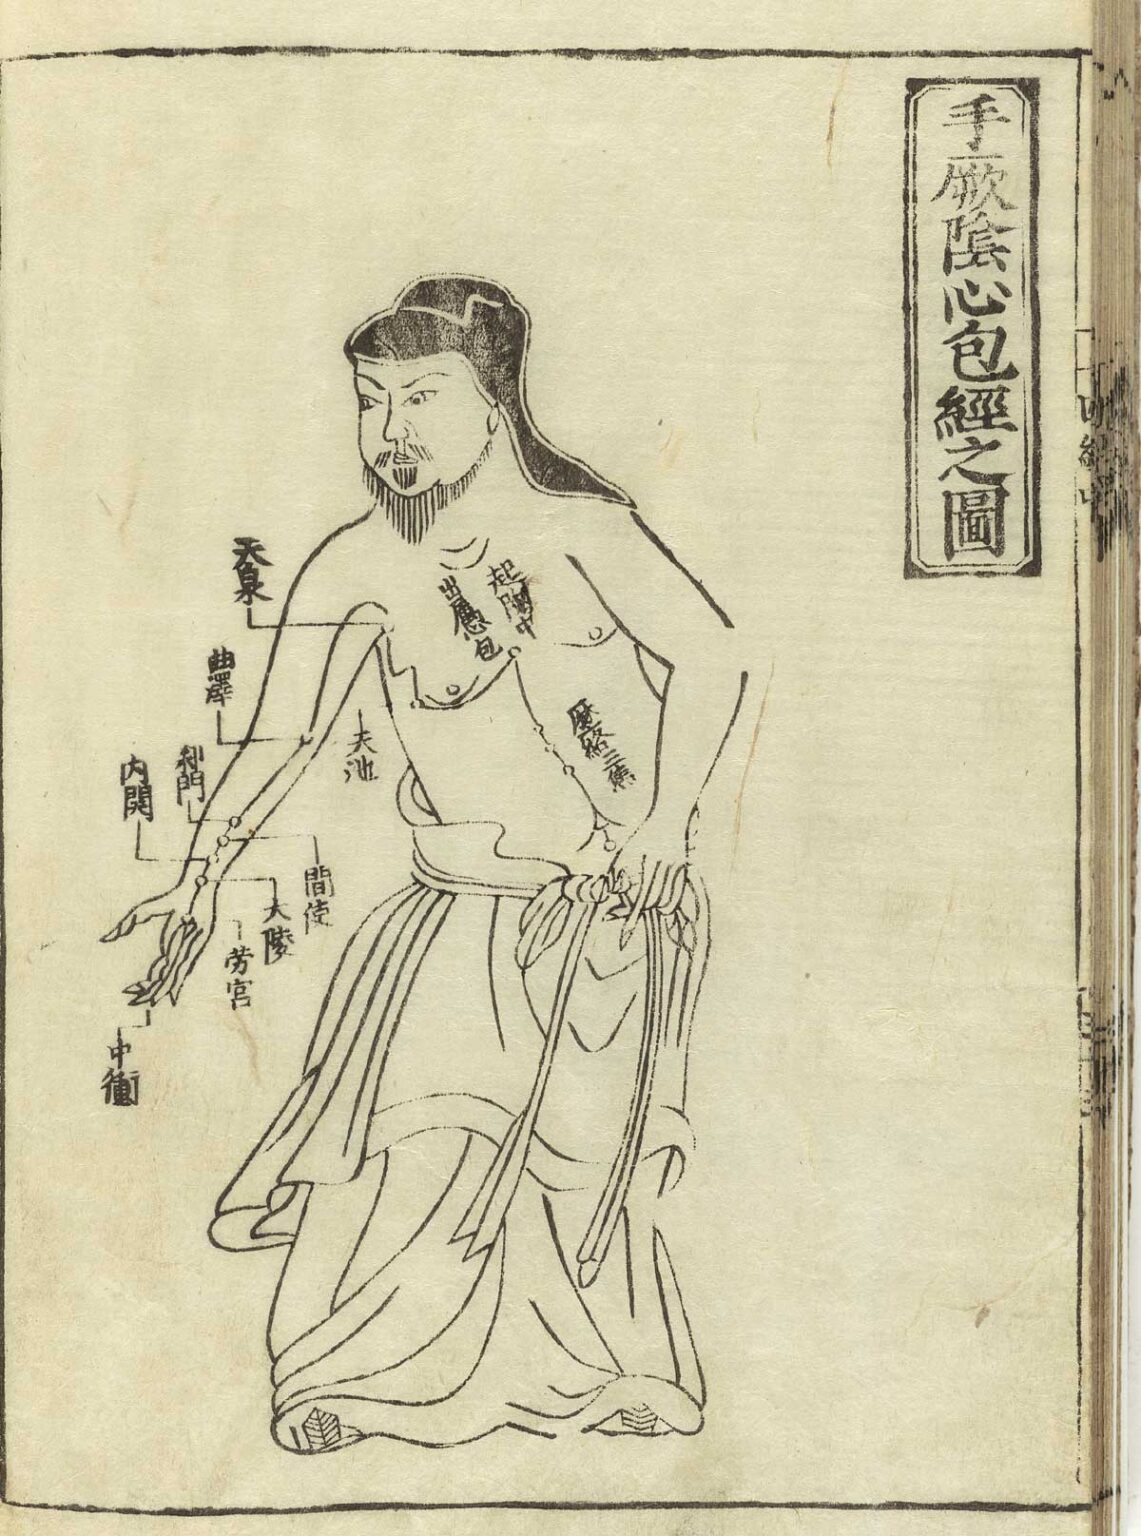 手厥陰心包經之圖
起胸中
出属心包
歴絡三焦
天泉
天池
曲澤
郄門
内関
間使
大陵
労宮
中衝